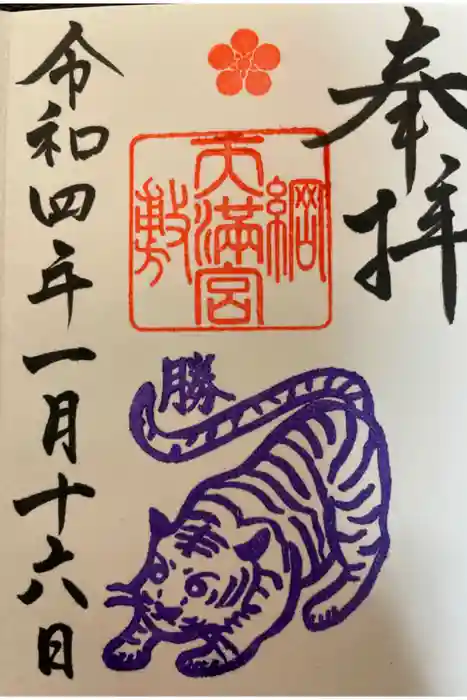 奉拝
綱
天満宮
敷
勝
令和四年一月十六日